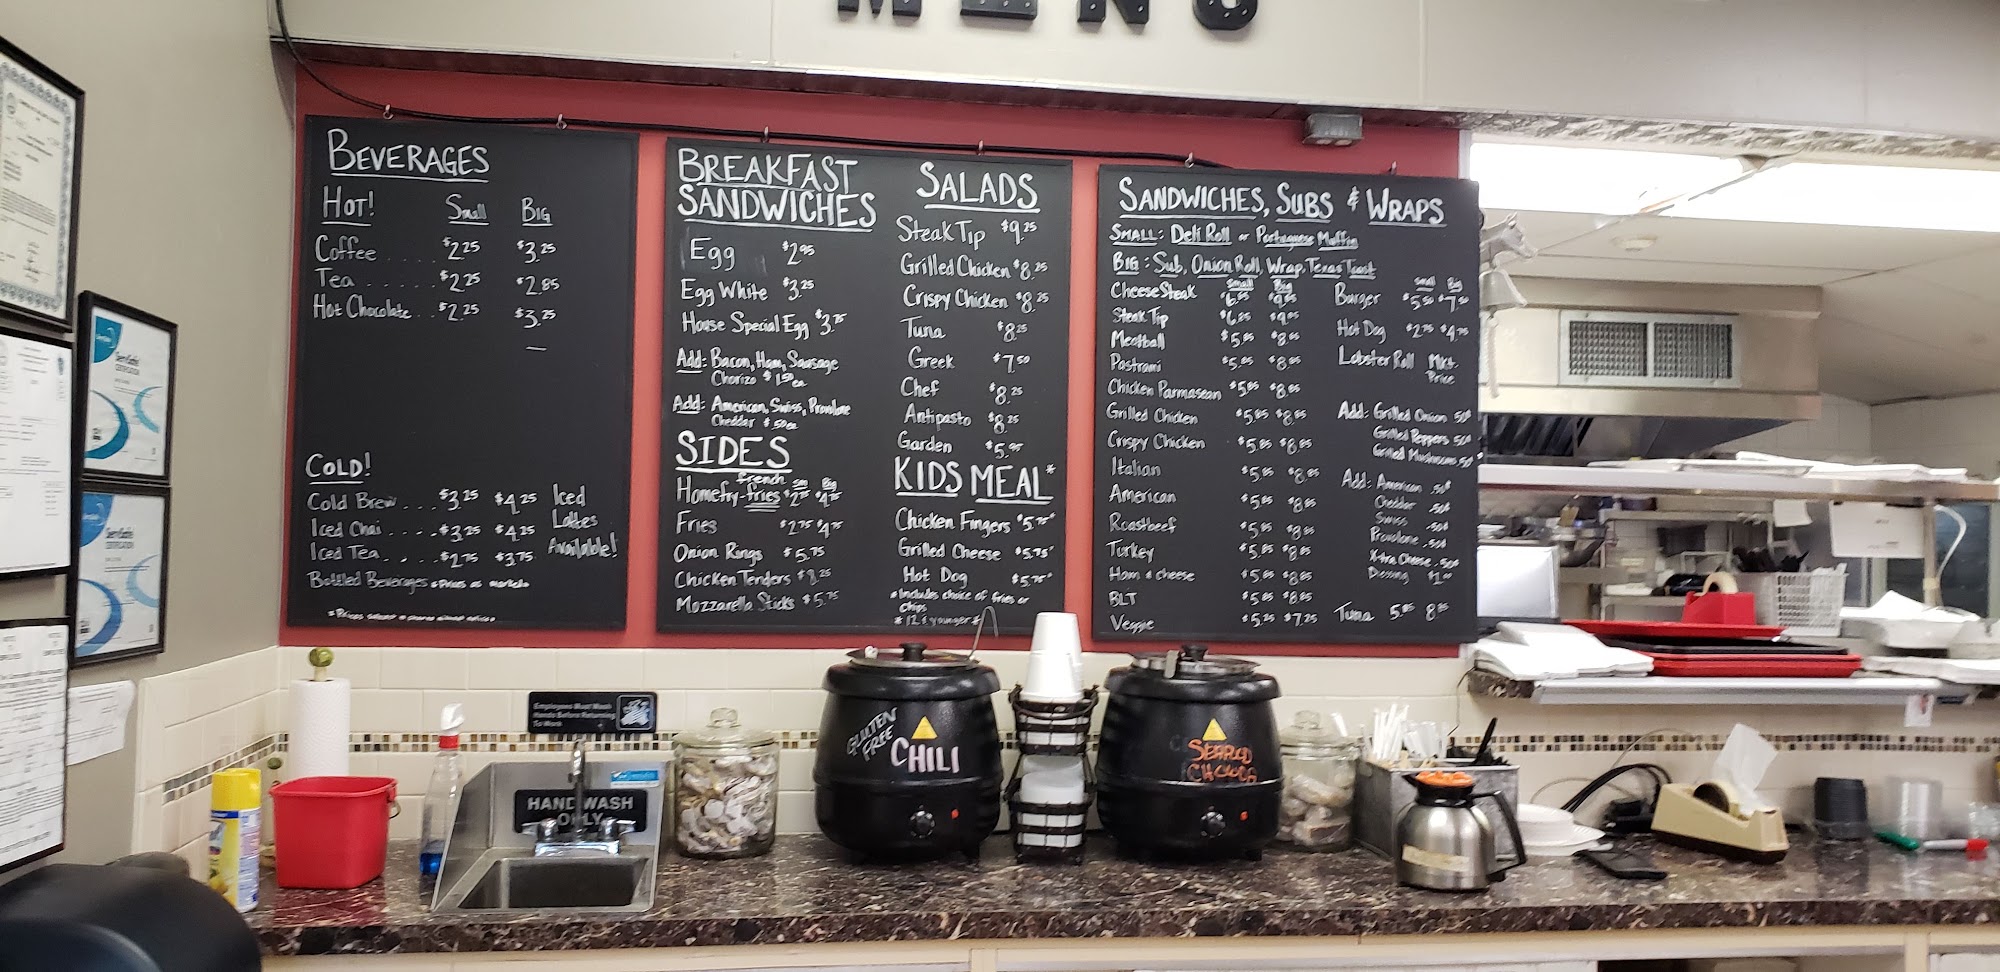 MENU
BEVERAGES
HOT! Small BIG
Coffee .... $2.25 $3.25
Tea ...... $2.25 $2.85
Hot Chocolate .. $2.25 $3.25
COLD!
Cold Brew ... $3.25 $4.25
Iced Chai .... $3.25 $4.25
Iced Tea .... $2.75 $3.75
Iced
Lattes
Available!
Bottled Beverages * Prices as marked *
BREAKFAST
SANDWICHES
Egg $2.95
Egg White $3.25
House Special Egg $3.75
Add: Bacon, Ham, Sausage
Chorizo $1.50 ea
Add: American, Swiss, Provolone
Cheddar $.50 ea
SIDES
french sm Big
Homefry-fries $2.75 $4.75
Fries $2.75 $4.75
Onion Rings $5.75
Chicken Tenders $8.25
Mozzarella Sticks $5.75
SALADS
Steak Tip $9.25
Grilled Chicken $8.25
Crispy Chicken $8.25
Tuna $8.25
Greek $7.50
Chef $8.25
Antipasto $8.25
Garden $5.95
KIDS MEAL*
Chicken Fingers $5.75*
Grilled Cheese $5.75*
Hot Dog $5.75*
* Includes choice of fries or
chips
* 12 & younger *
SANDWICHES, SUBS & WRAPS
SMALL: Deli Roll or Portuguese Muffin
BIG: Sub, Onion Roll, Wrap, Texas Toast
Small Big
CheeseSteak $6.85 $9.85
Steak Tip $6.85 $9.85
Meatball $5.85 $8.85
Pastrami $5.85 $8.85
Chicken Parmasean $5.85 $8.85
Grilled Chicken $5.85 $8.85
Crispy Chicken $5.85 $8.85
Italian $5.85 $8.85
American $5.85 $8.85
Roastbeef $5.85 $8.85
Turkey $5.85 $8.85
Ham & cheese $5.85 $8.85
BLT $5.85 $8.85
Veggie $5.25 $7.25
Small Big
Burger $5.50 $7.50
Hot Dog $2.75 $4.75
Lobster Roll Mkt.
Price
Add: Grilled Onion .50¢
Grilled Peppers .50¢
Grilled Mushrooms .50¢
Add: American .50¢
Cheddar .50¢
Swiss .50¢
Provolone .50¢
X-tra Cheese .50¢
Dressing $1.00
Tuna 5.85 8.85
Employees Must Wash
Hands Before Returning
To Work
HANDWASH
ONLY
GLUTEN
FREE
CHILI